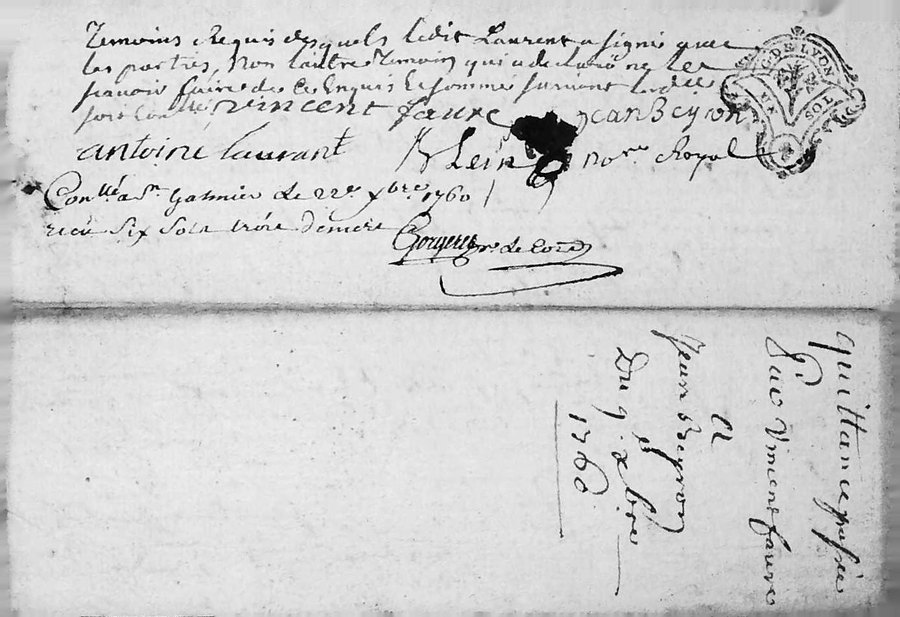 Temoins Requis desquels ledit Laurent a signé avec
les parties, Non lautre Temoin qui a declaré ne le
scavoir faire de ce Enquis et sommé suivant
soit Con.llé vincent faure jean Beyron
antoine laurant no.re Royal
Con.llé a St Galmier Le 22e xbre 1760
recu Six Sols trois deniers
G. DE LYON
SOL
quittance passée
Par Vincent faure
A
Jean Beyron
Du 9.e xbre
1760